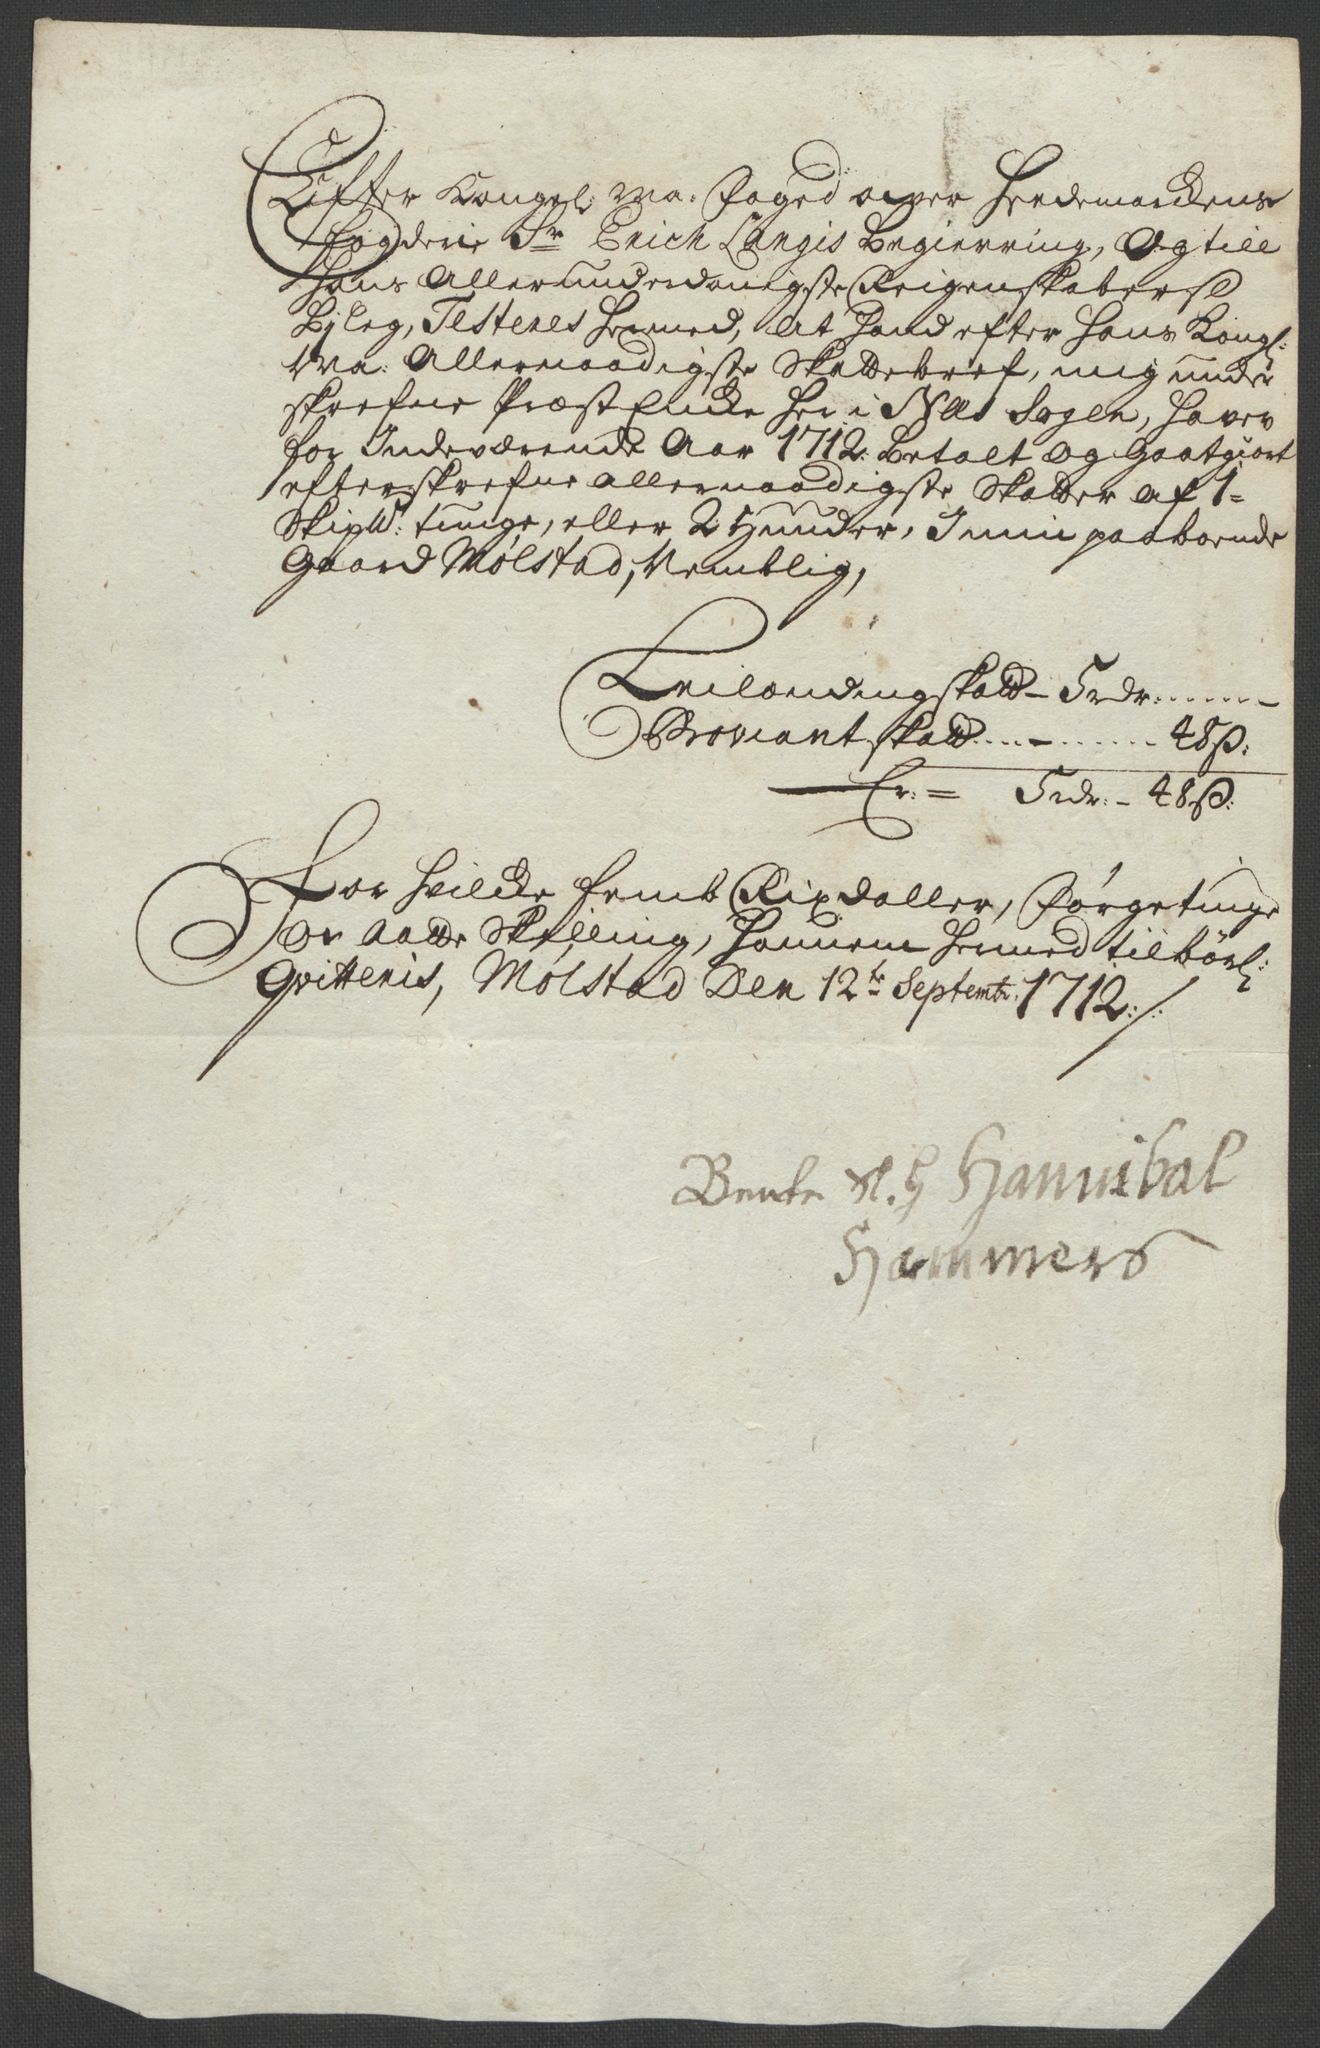 Effter Kongel: Ma: Foged ower Hedemarckens
Fogderie Sr Erich Langis Begierring, Og till
Hans Allerunderdanigste Reigenskabers
Bjleg, Testeres hermed, At Hand efter Hans Kongl:
Ma: Allernaadigste Skattebref, mig under
skrefne Præst Encke her i Næs Sogen, haver
for Indeværende Aar 1712: Betalt Og Gaatgiort
efterskrefne allernaadigste Skatter af 1=
Skip℔: tunge, eller 2 Hunder, I min paaboende
Gaard Mølstad, Nemblig,
Leilændingskatt - 5 rdr: ......-
Proviantskatt....-....... 48 ß:
Er: = 5 rdr: - 48 ß:
For hvilcke femb Rixdaller, Førgetinge
Or Aatte Skilling, Hannem hermed tilbörl:
Qvitteris, Mølstad Den 12te Septembr: 1712:/:
Bente Sl. H Hannibal
Hammers